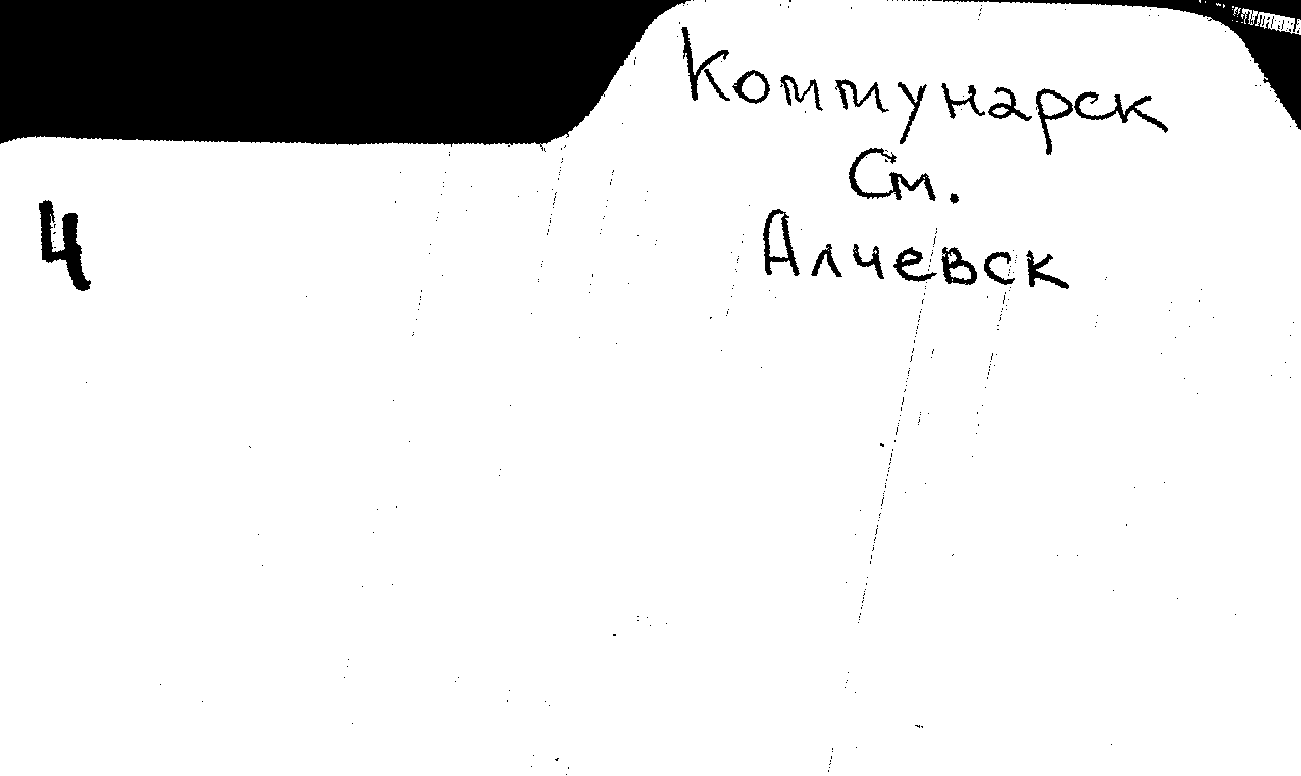 Коммунарск
См.
Алчевск
4